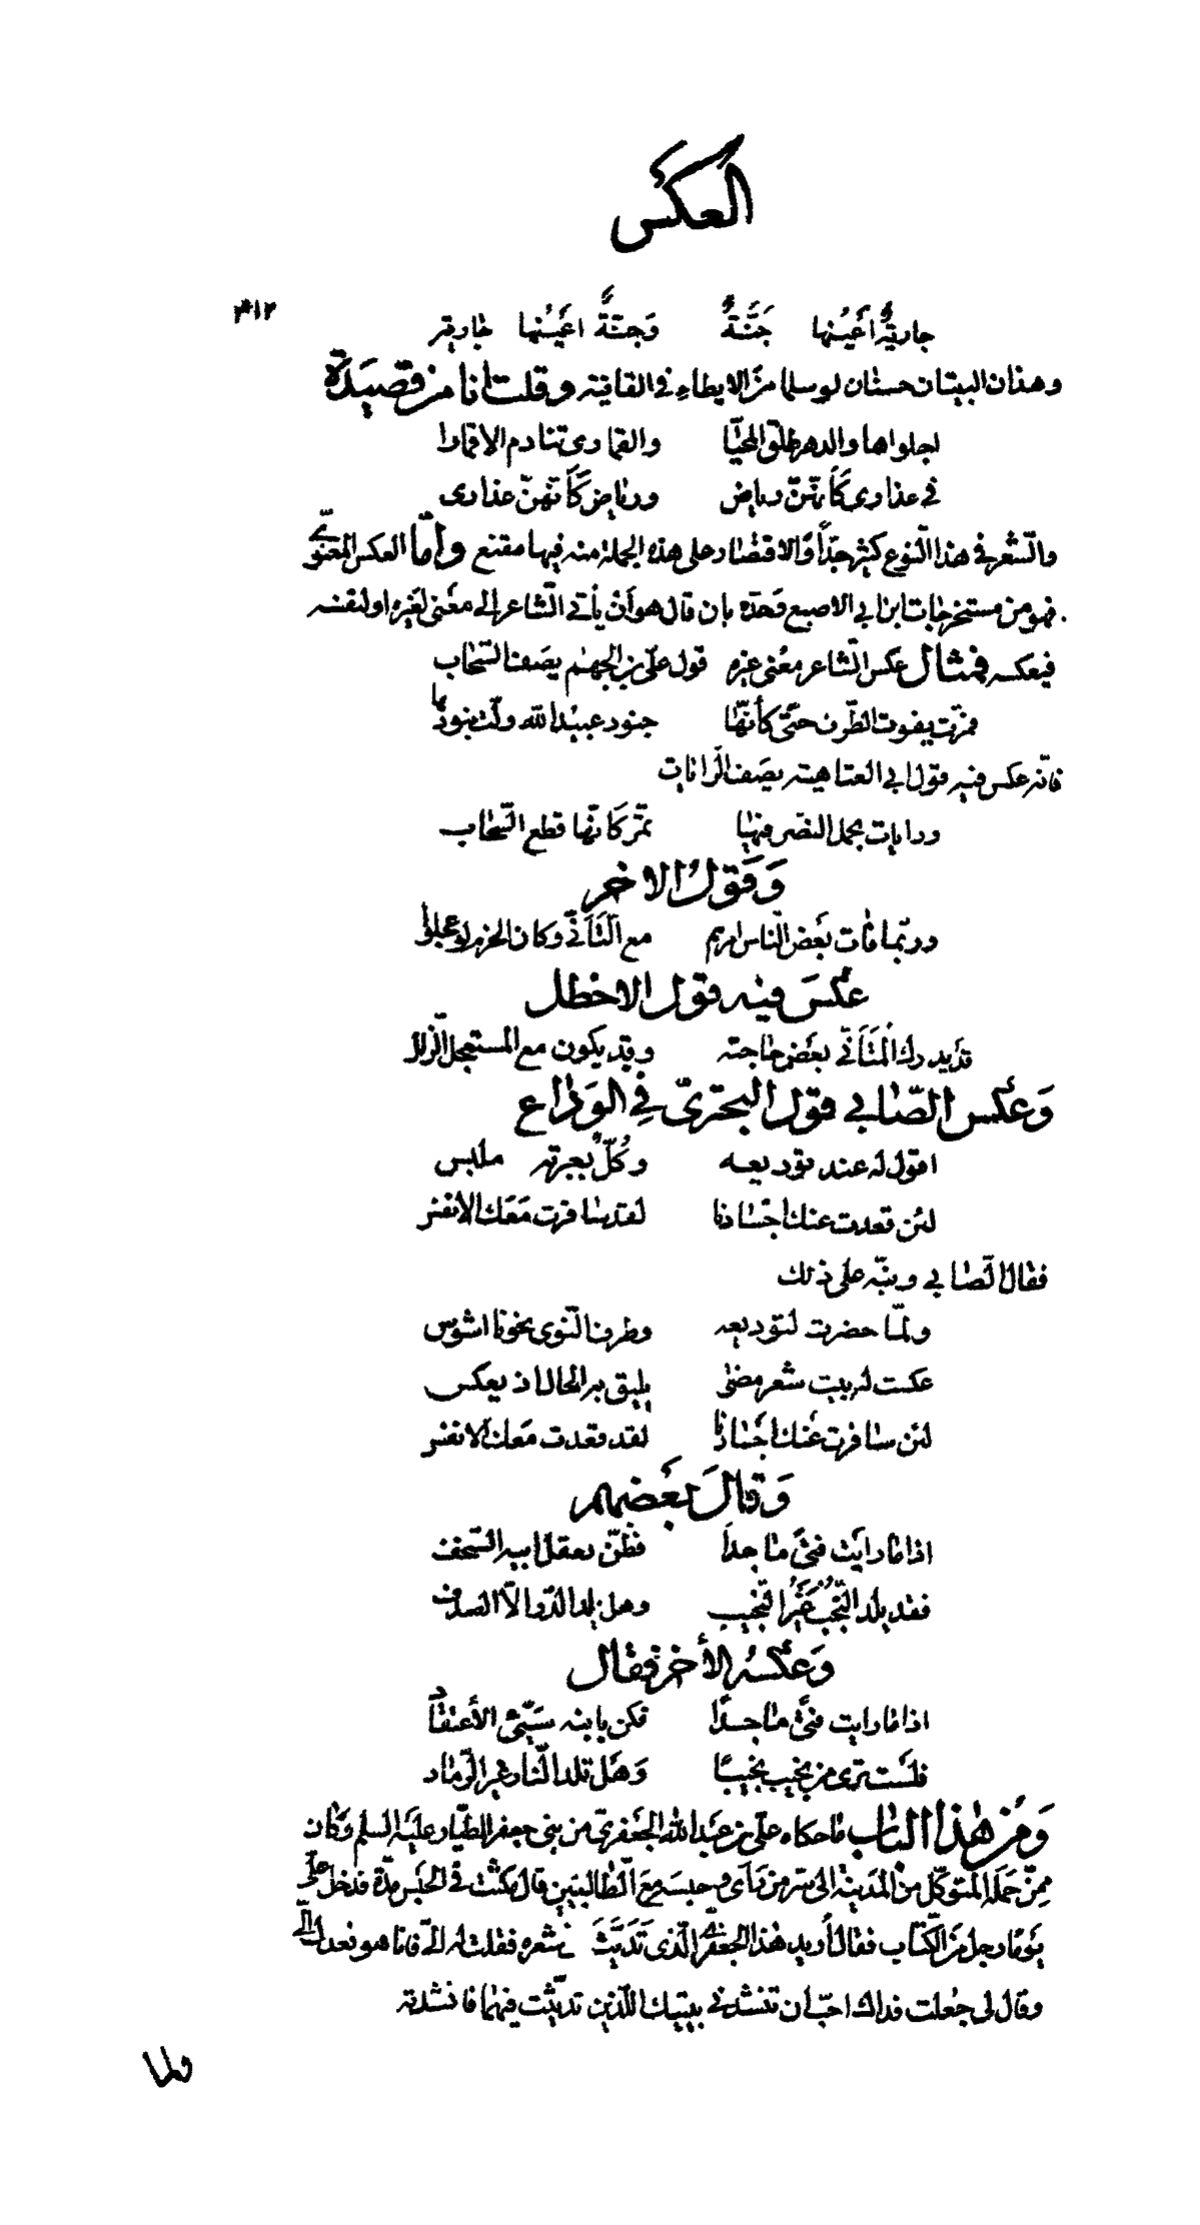 العكس
٣١٢
جاريةٌ اعينها جَنَّةٌ وَجنّةٌ اعينها جاريه
وهذان البيتان حسنان لو سلما من الايطاء في القافيه وقلت انا من قصيدة
اجلواها والدهر طلق المحيّا والقمارى تنادم الاقمارا
في عذارى كَأنهنّ رياض ورياض كَأنهنّ عذارى
والشعر في هذا النوع كثير جدّاً والاقتصار على هذه الجملة منه فيها مقنع وامّا العكس المعنوي
فهو من مستخرجات ابن ابي الاصبع وَحدّه بان قال هو اَن يأتي الشاعر الى معنى لغيره او لنفسه
فيعكسه فمثال عكس الشاعر معنى غيره قول علي بن الجهم يصف السحاب
فمرّت تفوت الطرف حتّى كأنّها جنود عبيد الله ولّت بنودها
فانّه عكس فيه قول ابي العتاهيته يصف الرايات
ورايات يحل النصر فيها تمرّ كانّها قطع السحاب
وَقولُ الاخر
وربّما فات بعَض النّاس امرهم مع التَأنّي وكان الحزم لو عجلوا
عكَسَ فيه قول الاخطل
قد يدرك المُتَأَنّي بعَض حاجته وقد يكون مع المستعجل الزلل
وَعكس الصّابي قول البحتريّ في الوَداع
اقول له عند توديعه وكُلٌّ بعبرته ملبس
لئن قعدت عنك اجسادنا لقد سافرت مَعَك الانفس
فقال الصّابي ونبّه على ذلك
ولمّا حضرت لتوديعه وطرف النّوى نحونا اشوس
عكست له بيت شعر مضى يليق به الحال اذ يعكس
لئن سافرت عَنك اجَسادنا لقد قعدت مَعك الانفس
وَقالَ بَعَضهم
اذا ما رايَت فتىً ما جداً فظنّ بعقل ابيه السّخف
فقد يلد النّجُب غَيُر النّجيب وهل يلد الدّر الّا الصدف
وَعكسهُ الأخر فقال
اذا ما رايت فتىً ماجدًا فكن بابنه سَيّئ الأعتقاد
فلَست ترى من نجيب نجيبًا وَهَل تلد النّار غير الرّماد
وَمُن هٰذا الباب ما حكاه عليّ بن عبَد الله الجَعفريّ من بني جعفر الطيّار عليَه السلم وَكان
ممِنّ حَمَله المتوكّل من المَدينة الى سر من رَآى وحبسَه مَعَ الطالبيّين قال مكثت في الحَبس مدّة فدخل عليّ
يَومًا رجل مِنَ الكتّاب فقال أريد هٰذا الجَعفريّ الّذي تَدَيَّثَ في شعره فقلت له الىّ فانا هو فعدل الىّ
وقال لي جُعلت فداك احبّ ان تنشدني بيتيك اللّذين تديّثت فيهما فانشدته
ولما